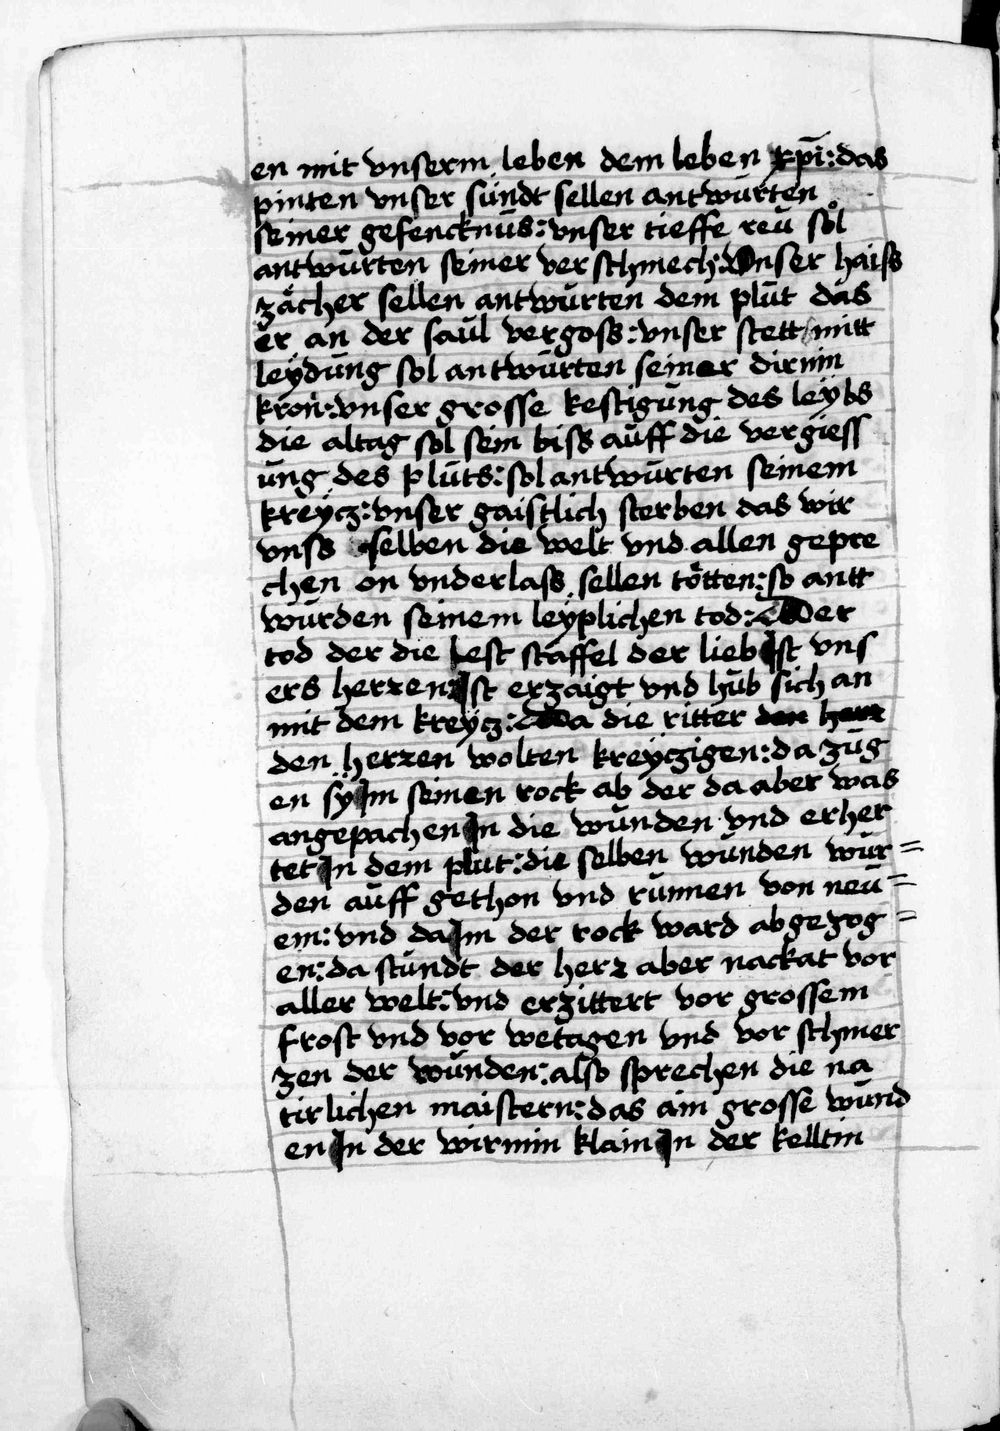 en mit vnserm leben dem leben xp̄i: das
pinten vnser sündt sellen antwürten
seiner gefencknüs: vnser tieffe reü sol
antwürten seiner verschmech: Vnser haiss
zächer sellen antwürten dem plüt das
er an der saül vergoss: vnser stett mitt
leydüng sol antwürten seiner dirnin
kron: vnser grosse kestigüng des leybs
die altag sol sein biss aüff die vergiess
üng des plüts: sol antwürten seinem
kreÿcz: vnser gaistlich sterben das wir
vnss selben die welt vnd allen gepre
chen on vnderlass sellen tötten: so antt
würden seinem leÿplichen tod: Der
tod der die lest staffel der lieb Ist vns
ers herren: Ist erzaigt vnd hüb sich an
mit dem kreÿcz: Da die ritter den herr
den herren wolten kreÿczigen: da züg
en sÿ Im seinen rock ab der da aber was
angepachen In die wünden vnd erher
tet In dem plüt: die selben wünden wür=
den aüff gethon vnd rünnen von neü=
em: vnd da Im der rock ward abgezog=
en: da stündt der herr aber nackat vor
aller welt: vnd erzittert vor grossem
frost vnd vor wetagen vnd vor schmer
zen der wünden: also sprechen die na
tirlichen maistern: das ain grosse wünd
en In der wirmin klain In der keltin